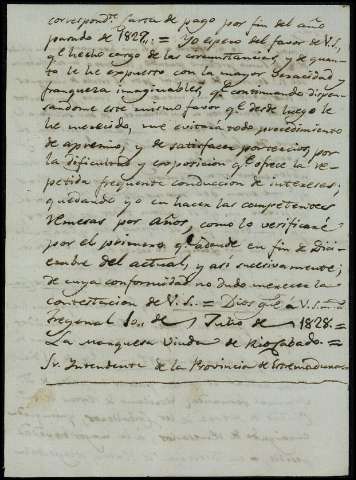 correspond.te carta de pago por fin del año
pasado de 1827,, = Yo espero del favor de V.S.,
q.e hecho cargo de las circunstancias, y de quan-
to le he expuesto con la mayor veracidad y
franqueza imaginables, q.e continuando dispen-
sandome este mismo favor q.e desde luego le
he merecido, me evitará todo procedimiento
de apremio; y de satisfacer por tercios, por
la dificultad y exposicion q.e ofrece la re-
petida frequente conduccion de intereses;
quedando yo en hacer las competentes
remesas por años, como lo verificaré
por el primero q.e adeude en fin de Dici-
embre del actual, y asi sucesivamente;
de cuya conformidad no dudo merecer la
contestacion de V.S. = Dios g.e á V.S. m.s a.s
10,, de Julio de 1828. =
La Marquesa Viuda de Riocabado. =
Sr. Intendente de la Provincia de Extremadura =